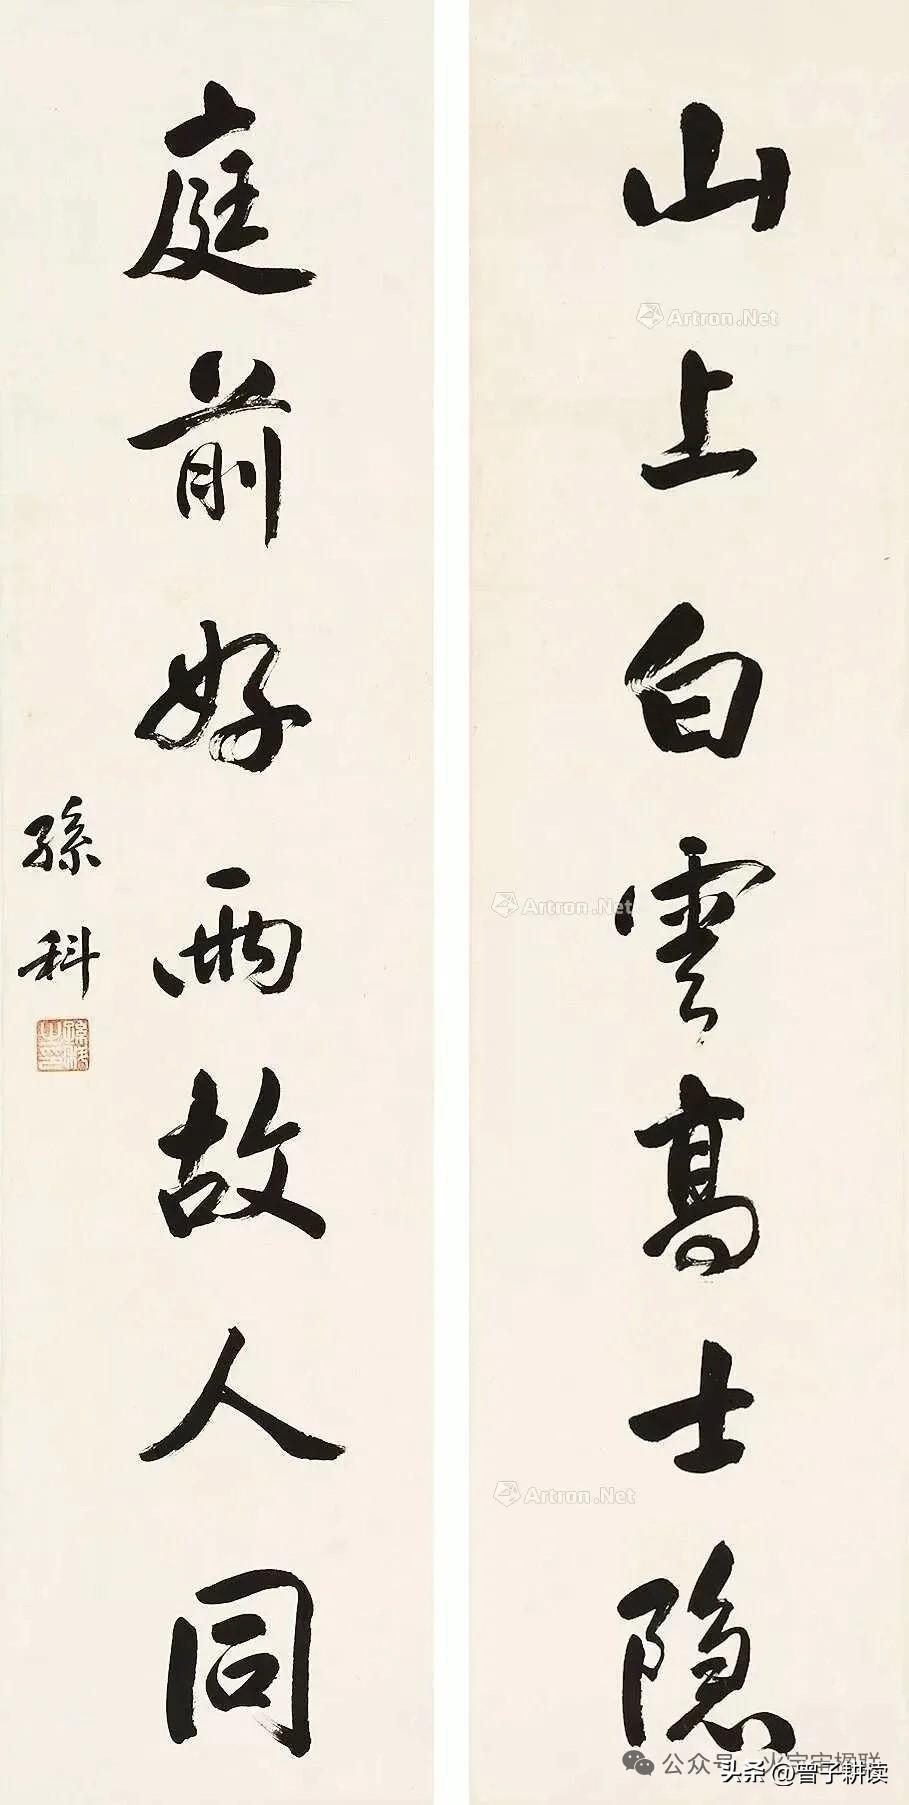 山上白雲高士隐
庭前好雨故人同
孫科
Artron.Net
Artron.Net
Artron.Net
头条@曾子耕读